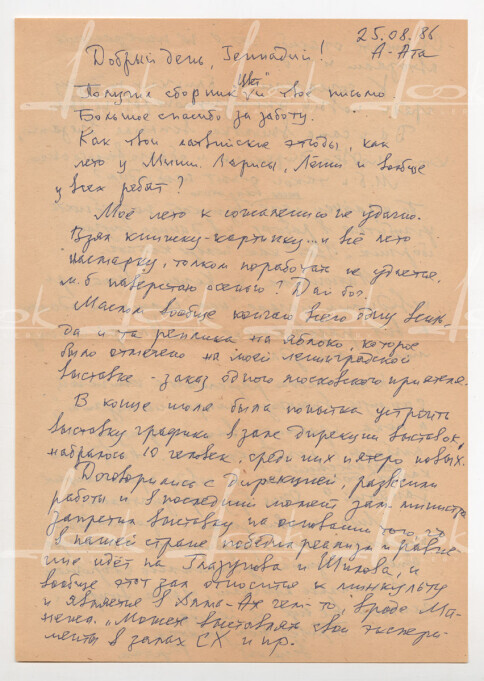 25.08.86
А-Ата
Добрый день, Геннадий!
Получил сборник "Цвет" и твоё письмо
Большое спасибо за заботу.
Как твои латвийские этюды, как
лето у Миши, Ларисы, и вообще
у всех ребят?
Моё лето к сожалению не удачно.
Взял книжку-картинку... и всё лето
насмарку, толком поработать не удается.
м.б наверстаю осенью? Дай бог.
Маслом вообще кончаю всего одну вещь,
да и та реплика на яблоко, которое
было отмечено на моей ленинградской
выставке - заказ одного московского приятеля.
В конце июля была попытка устроить
выставку графики в зале дирекции выставок,
набралось 10 человек, среди них пятеро новых.
Договорились с дирекцией, развесили
работы и в последний момент зам. министра
запретил выставку на основании того, что
в нашей стране победил реализм и равне-
ние идёт на Глазунова и Шилова, и
вообще этот зал относится к минкульту
и является в Алма-Ате чем-то, вроде Ма-
нежа. "Может выставлять свои экспери-
менты в залах СХ и пр.
look